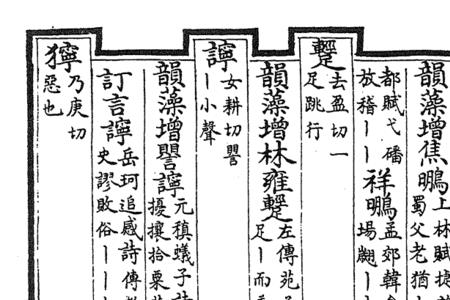 韻藻增焦鵬
上林賦捷
蜀父老猶
都賦弋磻
放稽丨丨
祥鵬
孟郊韓會
場翽丨丨
去盈切一
足跳行
韻藻增林雍
左傳苑子
足丨而
女耕切譻
丨小聲
韻藻增譻
元稹蟻子詩
擾攘拾粟
訂言
岳珂追感詩傳
史謬敗俗丨丨
獰
乃庚切
惡也